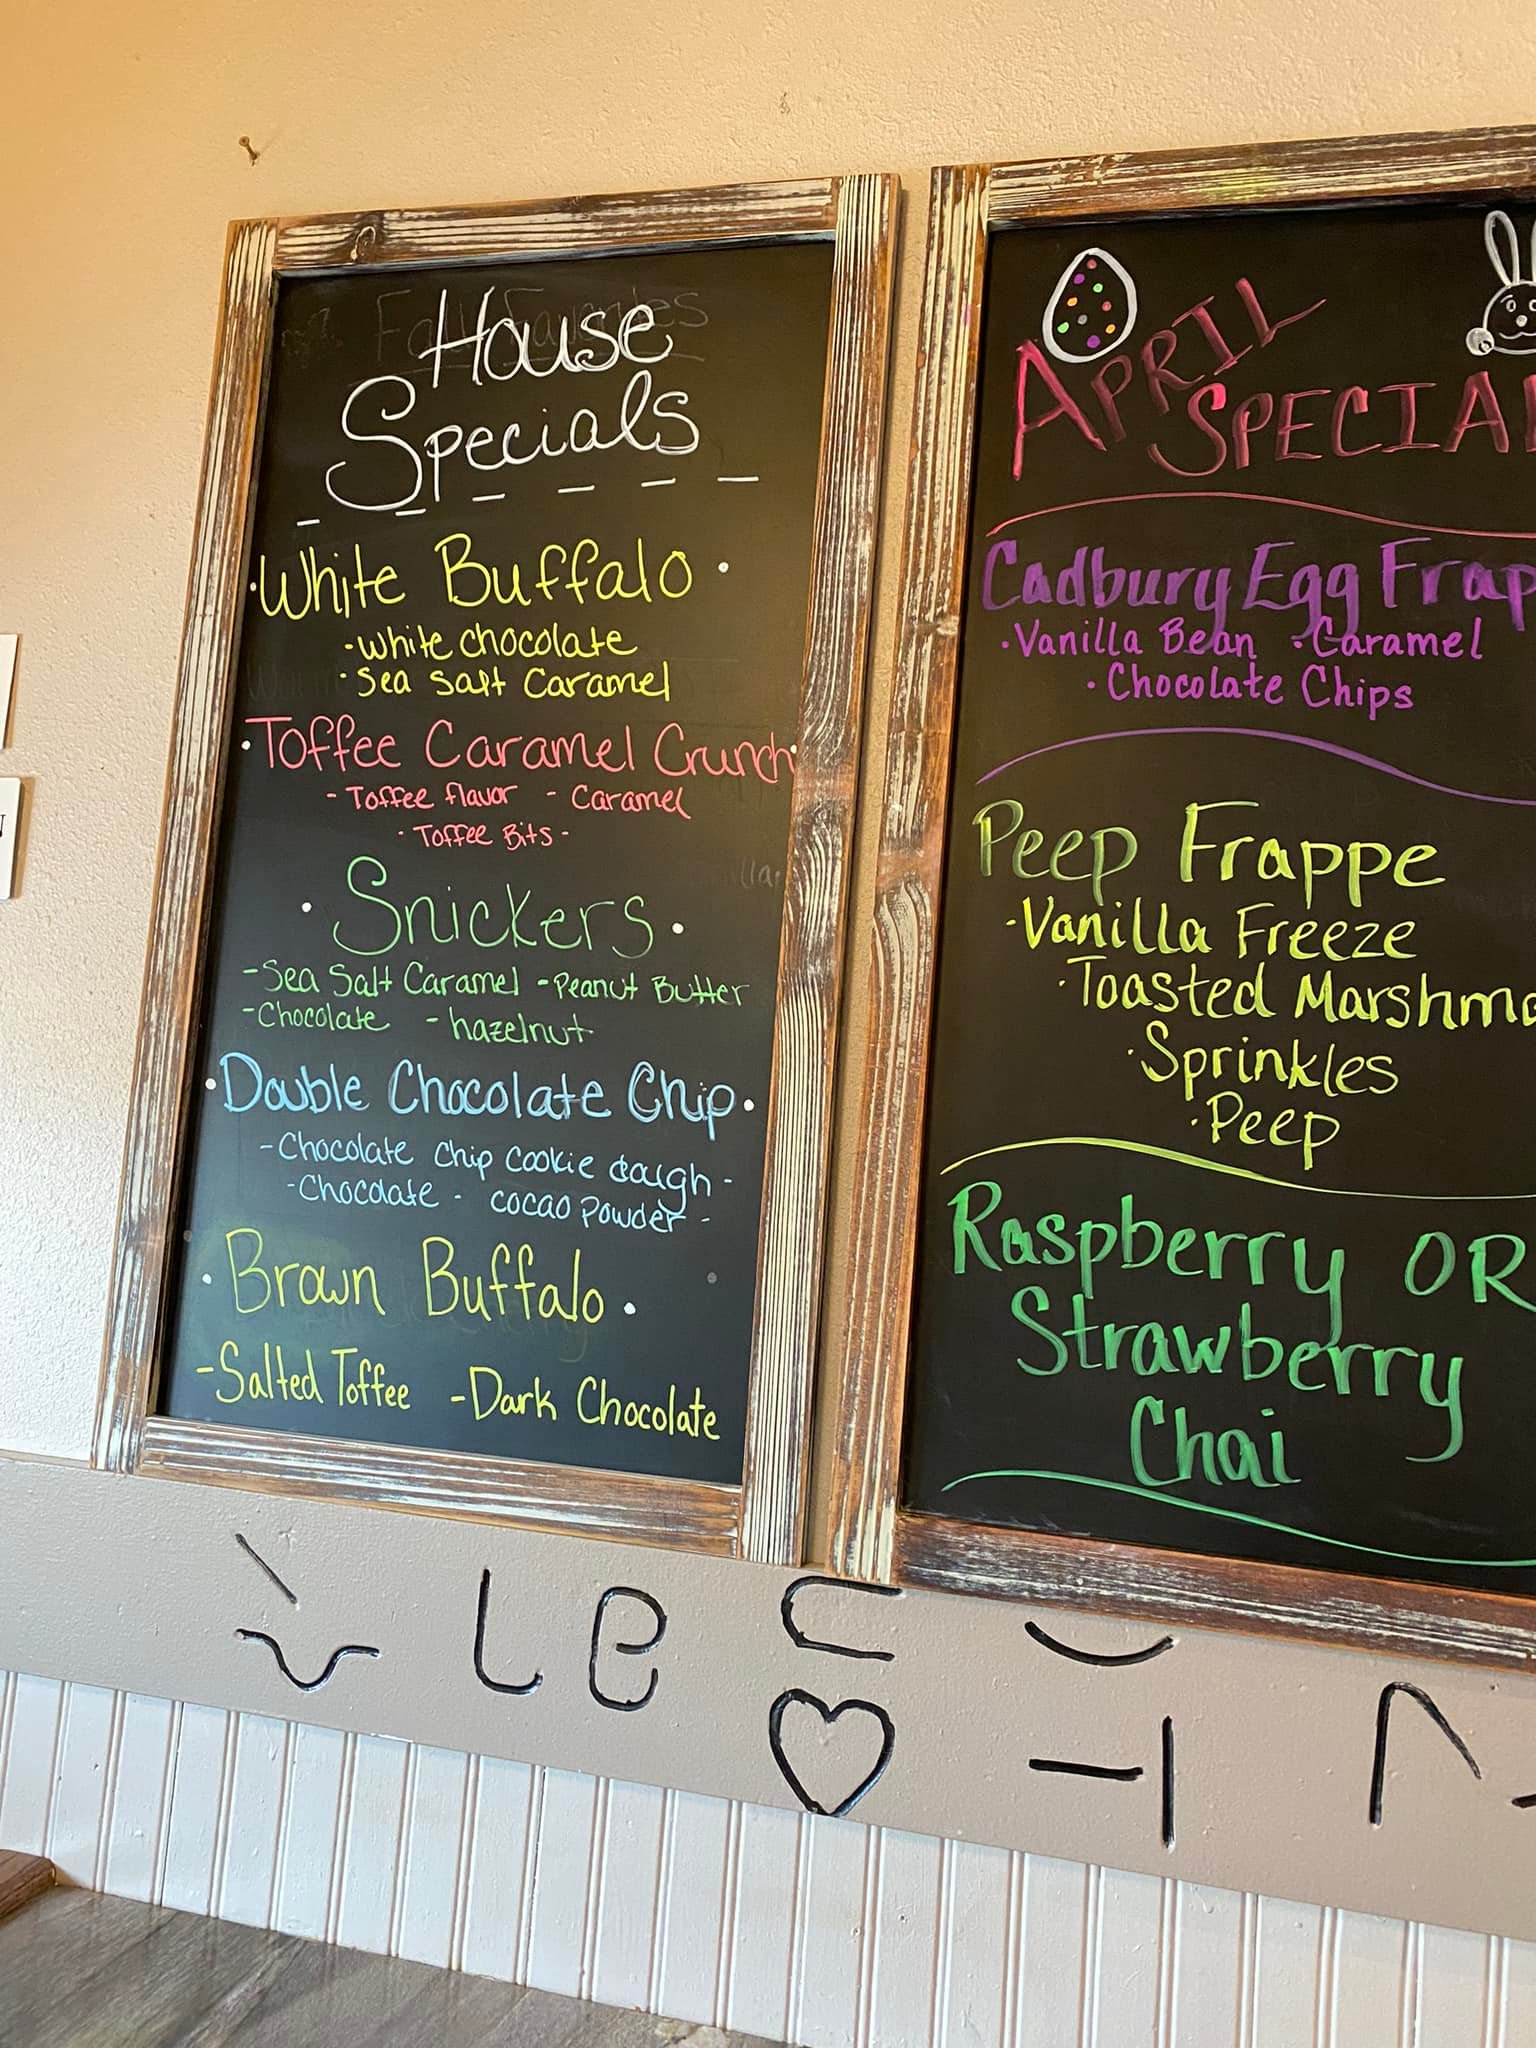 House
Specials
White Buffalo
· White chocolate
· Sea Salt Caramel
Toffee Caramel Crunch
- Toffee flavor - Caramel
· Toffee Bits -
Snickers
- Sea Salt Caramel - Peanut Butter
- Chocolate - hazelnut
Double Chocolate Chip
- Chocolate chip cookie dough -
- Chocolate - cocao powder -
Brown Buffalo
- Salted Toffee - Dark Chocolate
APRIL
SPECIAL
Cadbury Egg Frap
· Vanilla Bean · Caramel
· Chocolate Chips
Peep Frappe
· Vanilla Freeze
· Toasted Marshm
· Sprinkles
· Peep
Raspberry OR
Strawberry
Chai